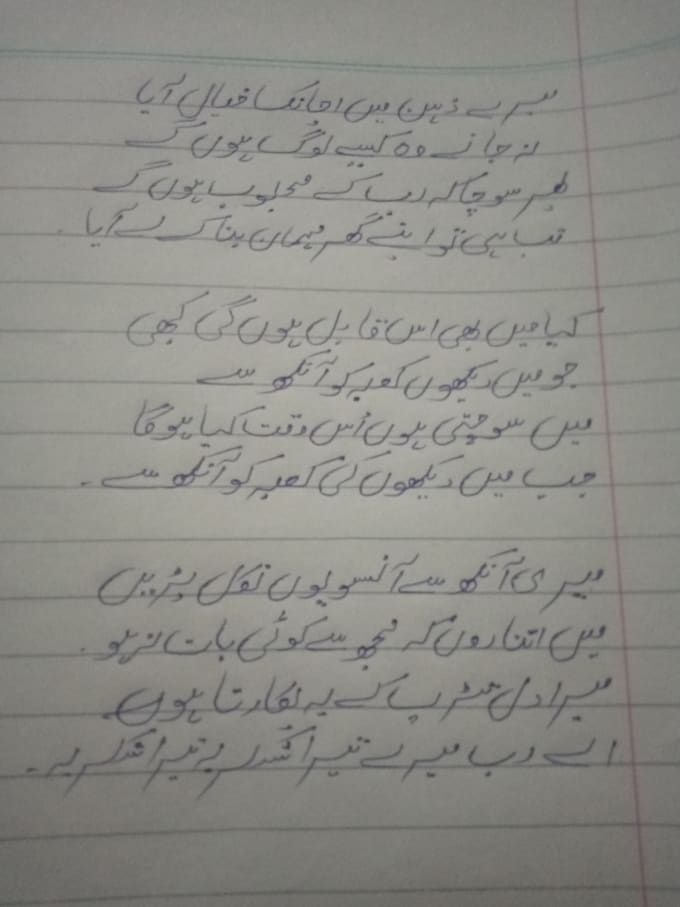 میرے ذہن میں اچانک خیال آیا
نہ جانے وہ کیسے لوگ ہوں گے
پھر سوچا کہ رب کے محبوب ہوں گے
تب ہی تو اپنے گھر مہمان بنا کے لے آیا۔
کیا میں بھی اس قابل ہوں گی کبھی
جو میں دیکھوں کعبہ کو آنکھ سے
میں سوچتی ہوں اُس وقت کیا ہوگا
جب میں دیکھوں گی کعبہ کو آنکھ سے۔
میری آنکھ سے آنسو یوں نکل پڑیں
میں اتنا روں کہ مجھ سے کوئی بات نہ ہو۔
میرا دل تڑپ کے یہ پکارتا ہوں
اے رب میرے تیرا شکریہ تیرا شکریہ۔